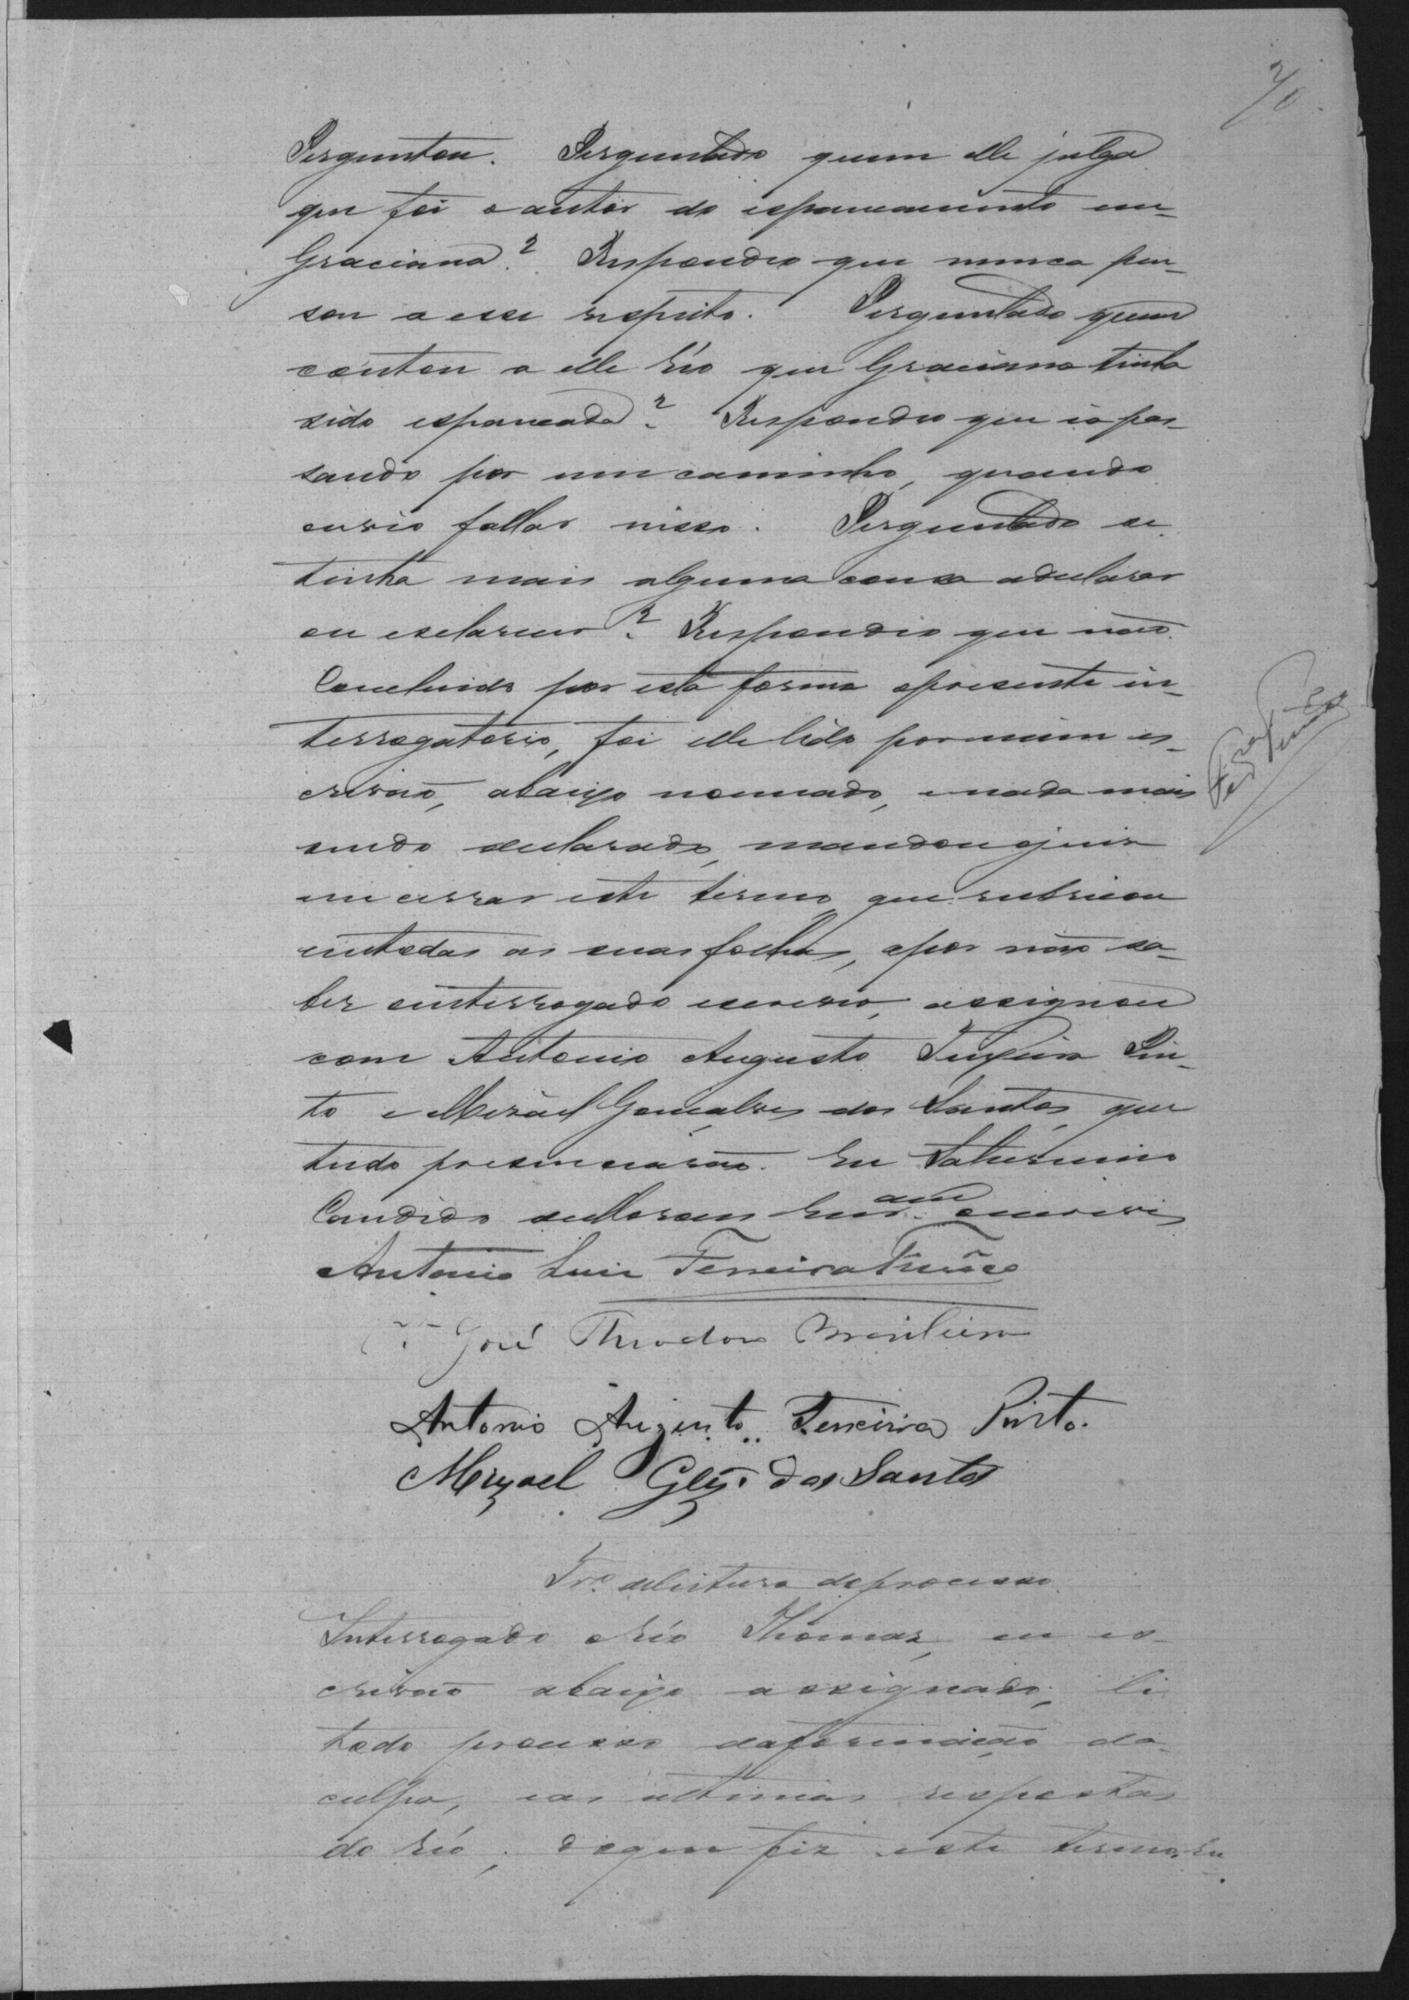 70
Perguntou. Perguntado quem elle julga
que foi o autor do espancamento em
Graciana? Respondeo que nunca pen-
sou a esse respeito. Perguntado quem
contou a elle Réo que Graciana tinha
sido espancada? Respondeo que ia pas-
sando por um caminho, quando
ouvio fallar nisso. Perguntado se
tinha mais alguma cousa a declarar
ou esclarecer? Respondeo que não.
Concluido por esta forma o presente in-
terrogatorio, foi elle lido por mim es-
crivão, abaixo nomeado, e nada mais
sendo declarado, mandou o juiz
encerrar este termo que rubricou
em todas as suas folhas, e por não sa-
ber o interrogado escrever, assignou
com Antonio Augusto Teixeira Pin-
to e Misael Gonçalves dos Santos, que
tudo presenciarão. Eu Saturnino
Candido de Moraes escrevi
Antonio Luiz Ferreira Tinôco
José Theodoro Brasileiro
Antonio Augusto Teixeira Pinto.
Mizael Glz. dos Santos
Tr.º de leitura do processo
Interrogado o Réo Thomaz, eu es-
crivão abaixo assignado, li
todo processo da formação da
culpa, e as ultimas respostas
do Réo; do que fiz este termo. Eu